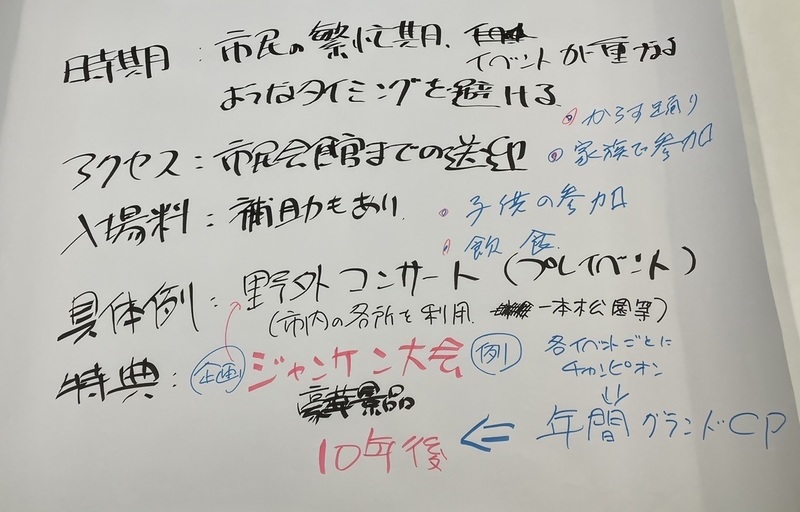 時期：市民の繁忙期、イベントが重なる
ようなタイミングを避ける
アクセス：市民会館までの送迎
◎からす通り
◎家族で参加
入場料：補助もあり
◎子供の参加
◎飲食
具体例：野外コンサート（プレイベント）
（市内の各所を利用 一本松園等）
特典：企画 ジャンケン大会 例
各イベントごとに
チャンピオン
豪華景品
年間グランドCP
10年後